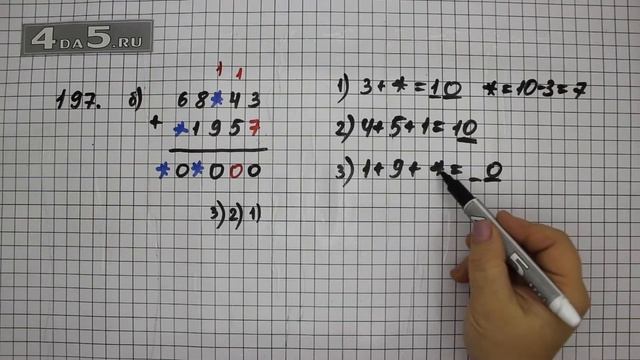 4DA5.RU
197. б)
1 1
68*43
+ *1957
*0*000
3) 2) 1)
1) 3+*=10 *=10-3=7
2) 4+5+1=10
3) 1+9+*=_0